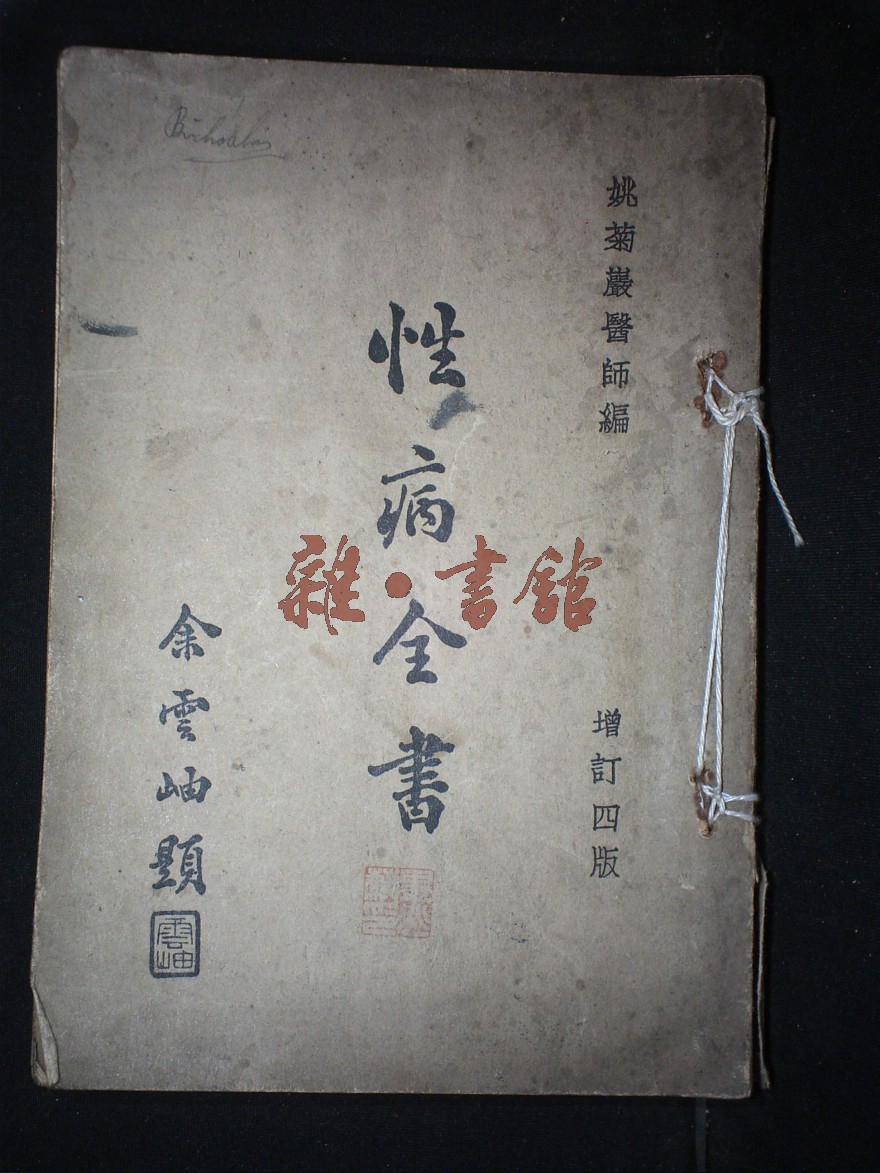 姚菊巖醫師編
增訂四版
性病全書
余雲岫題
雲岫
雜·書舘